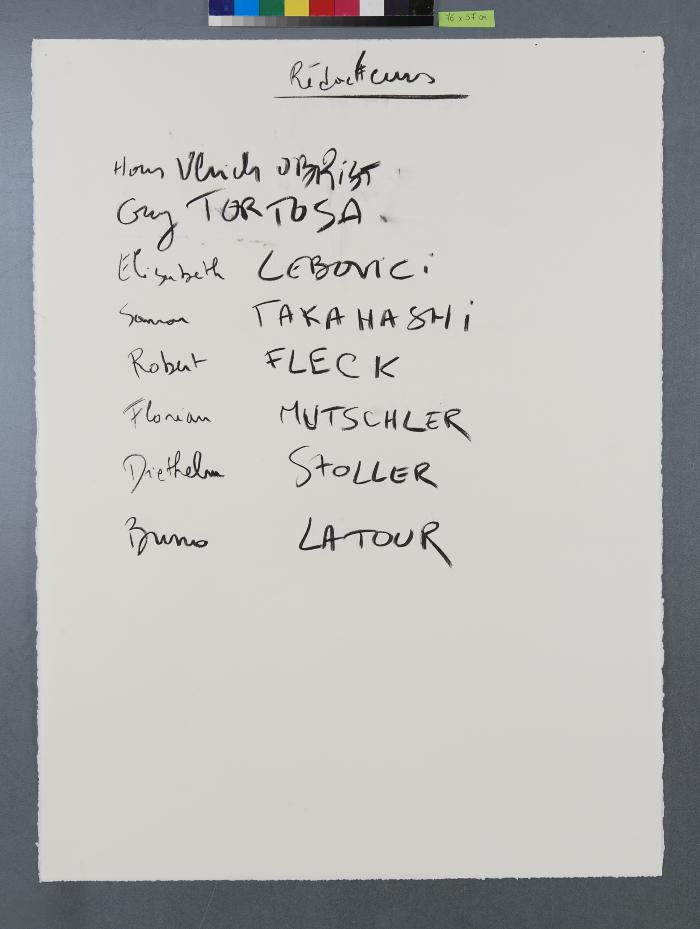 76 x 57 cm
Rédacteurs
Hans Ulrich OBRIST
Guy TORTOSA.
Elisabeth LEBOVICI
Samon TAKAHASHI
Robert FLECK
Florian MUTSCHLER
Diethelm STOLLER
Bruno LATOUR